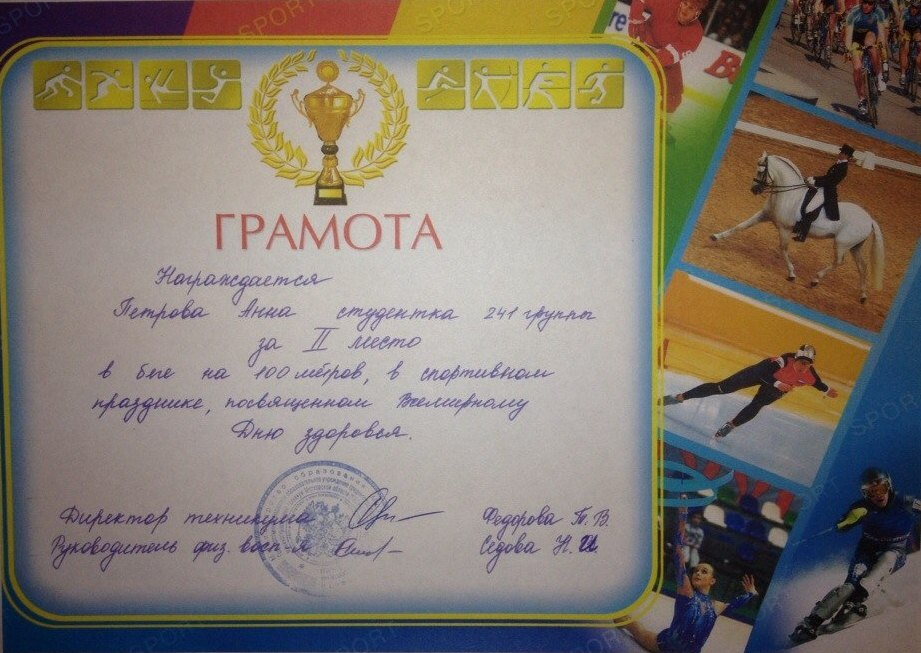 SPORT
ГРАМОТА
Награждается
Петрова Анна студентка 241 группы
за II место
в беге на 100 метров, в спортивном
празднике, посвященном Всемирному
Дню здоровья.
Директор техникума Федорова Т. В.
Руководитель физ. восп-я Седова Н. И.